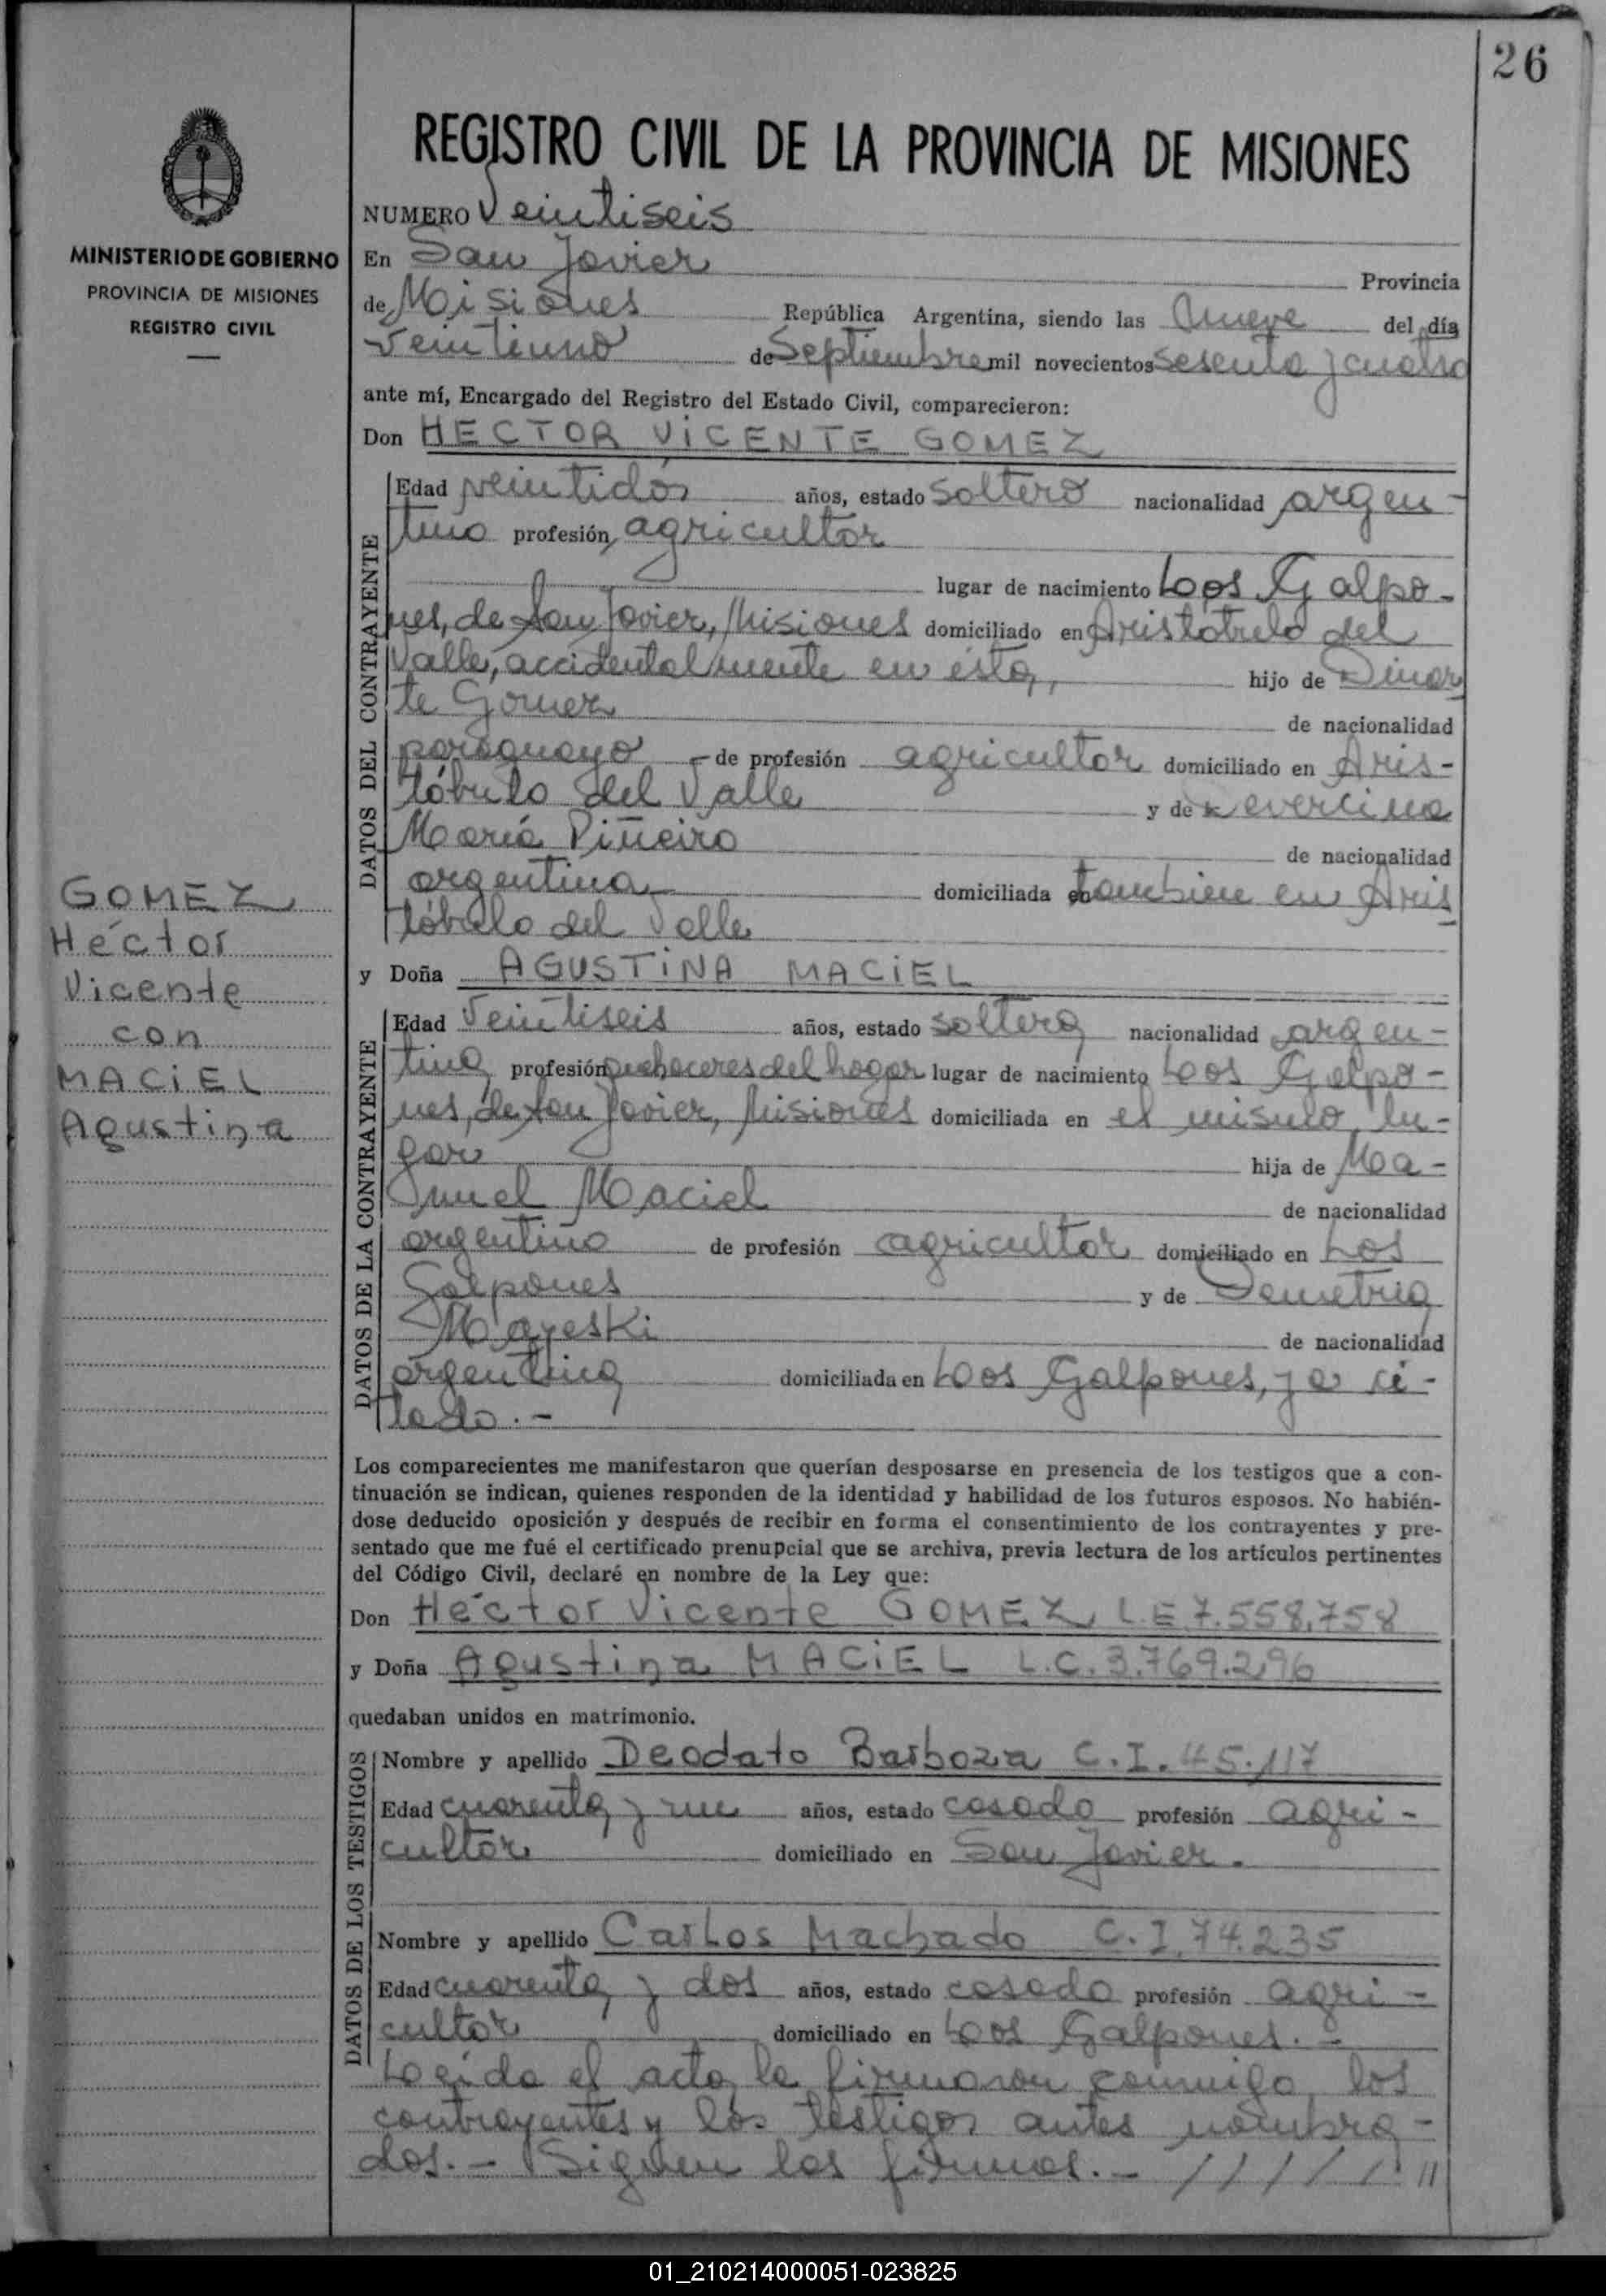 26
REGISTRO CIVIL DE LA PROVINCIA DE MISIONES
MINISTERIO DE GOBIERNO
PROVINCIA DE MISIONES
REGISTRO CIVIL
NUMERO Veintiseis
En San Javier Provincia
de Misiones República Argentina, siendo las nueve del día
veintiuno de Septiembre mil novecientos sesenta y cuatro
ante mí, Encargado del Registro del Estado Civil, comparecieron:
Don HECTOR VICENTE GOMEZ
DATOS DEL CONTRAYENTE
Edad veintidos años, estado soltero nacionalidad argen-
tino profesión agricultor
lugar de nacimiento Los Galpo-
nes, de San Javier, Misiones domiciliado en Aristobulo del
Valle, accidentalmente en ésta, hijo de
te Gomez de nacionalidad
paraguayo - de profesión agricultor domiciliado en Aris-
tóbulo del Valle y de
María Piñeiro de nacionalidad
argentina domiciliada en tambien en Aris
tóbulo del Valle
GOMEZ
Héctor
Vicente
con
MACIEL
Agustina
y Doña AGUSTINA MACIEL
DATOS DE LA CONTRAYENTE
Edad Veintiseis años, estado soltera nacionalidad argen-
tina profesión quehaceres del hogar lugar de nacimiento Los Galpo-
nes, de San Javier, Misiones domiciliada en el mismo lu-
gar hija de Ma-
nuel Maciel de nacionalidad
argentino de profesión agricultor domiciliado en Los
Galpones y de Demetria
Mayeski de nacionalidad
argentina domiciliada en Los Galpones, ya ci-
tado.-
Los comparecientes me manifestaron que querían desposarse en presencia de los testigos que a con-
tinuación se indican, quienes responden de la identidad y habilidad de los futuros esposos. No habién-
dose deducido oposición y después de recibir en forma el consentimiento de los contrayentes y pre-
sentado que me fué el certificado prenupcial que se archiva, previa lectura de los artículos pertinentes
del Código Civil, declaré en nombre de la Ley que:
Don Héctor Vicente GOMEZ, L.E 7.558.758
y Doña Agustina MACIEL L.C. 3.769.296
quedaban unidos en matrimonio.
DATOS DE LOS TESTIGOS
Nombre y apellido Deodato Barboza C.I. 45.117
Edad cuarenta y un años, estado casado profesión agri-
cultor domiciliado en San Javier.
Nombre y apellido Carlos Machado C.I. 74.235
Edad cuarenta y dos años, estado casado profesión agri-
cultor domiciliado en Los Galpones.-
Leída el acta, la firmaron conmigo, los
contrayentes y los testigos antes nombra-
dos.- Siguen las firmas.- / / / / / //
01_210214000051-023825